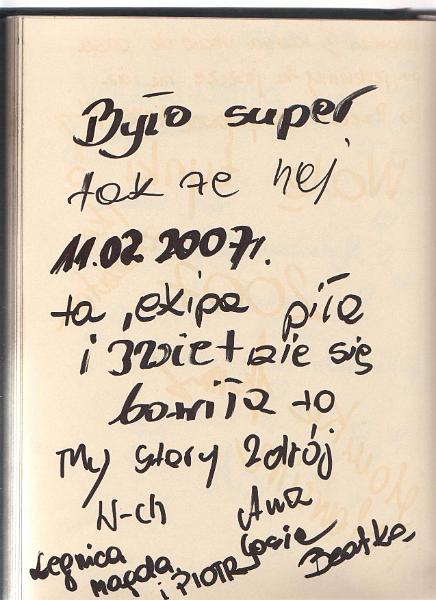 Było super
tak że hej
11.02 2007r.
ta ,ekipa piła
i świetnie się
bawiła to
My stary Zdrój
N-ch Ana
Legnica Gosia
Magda, i PIOTR Beatka